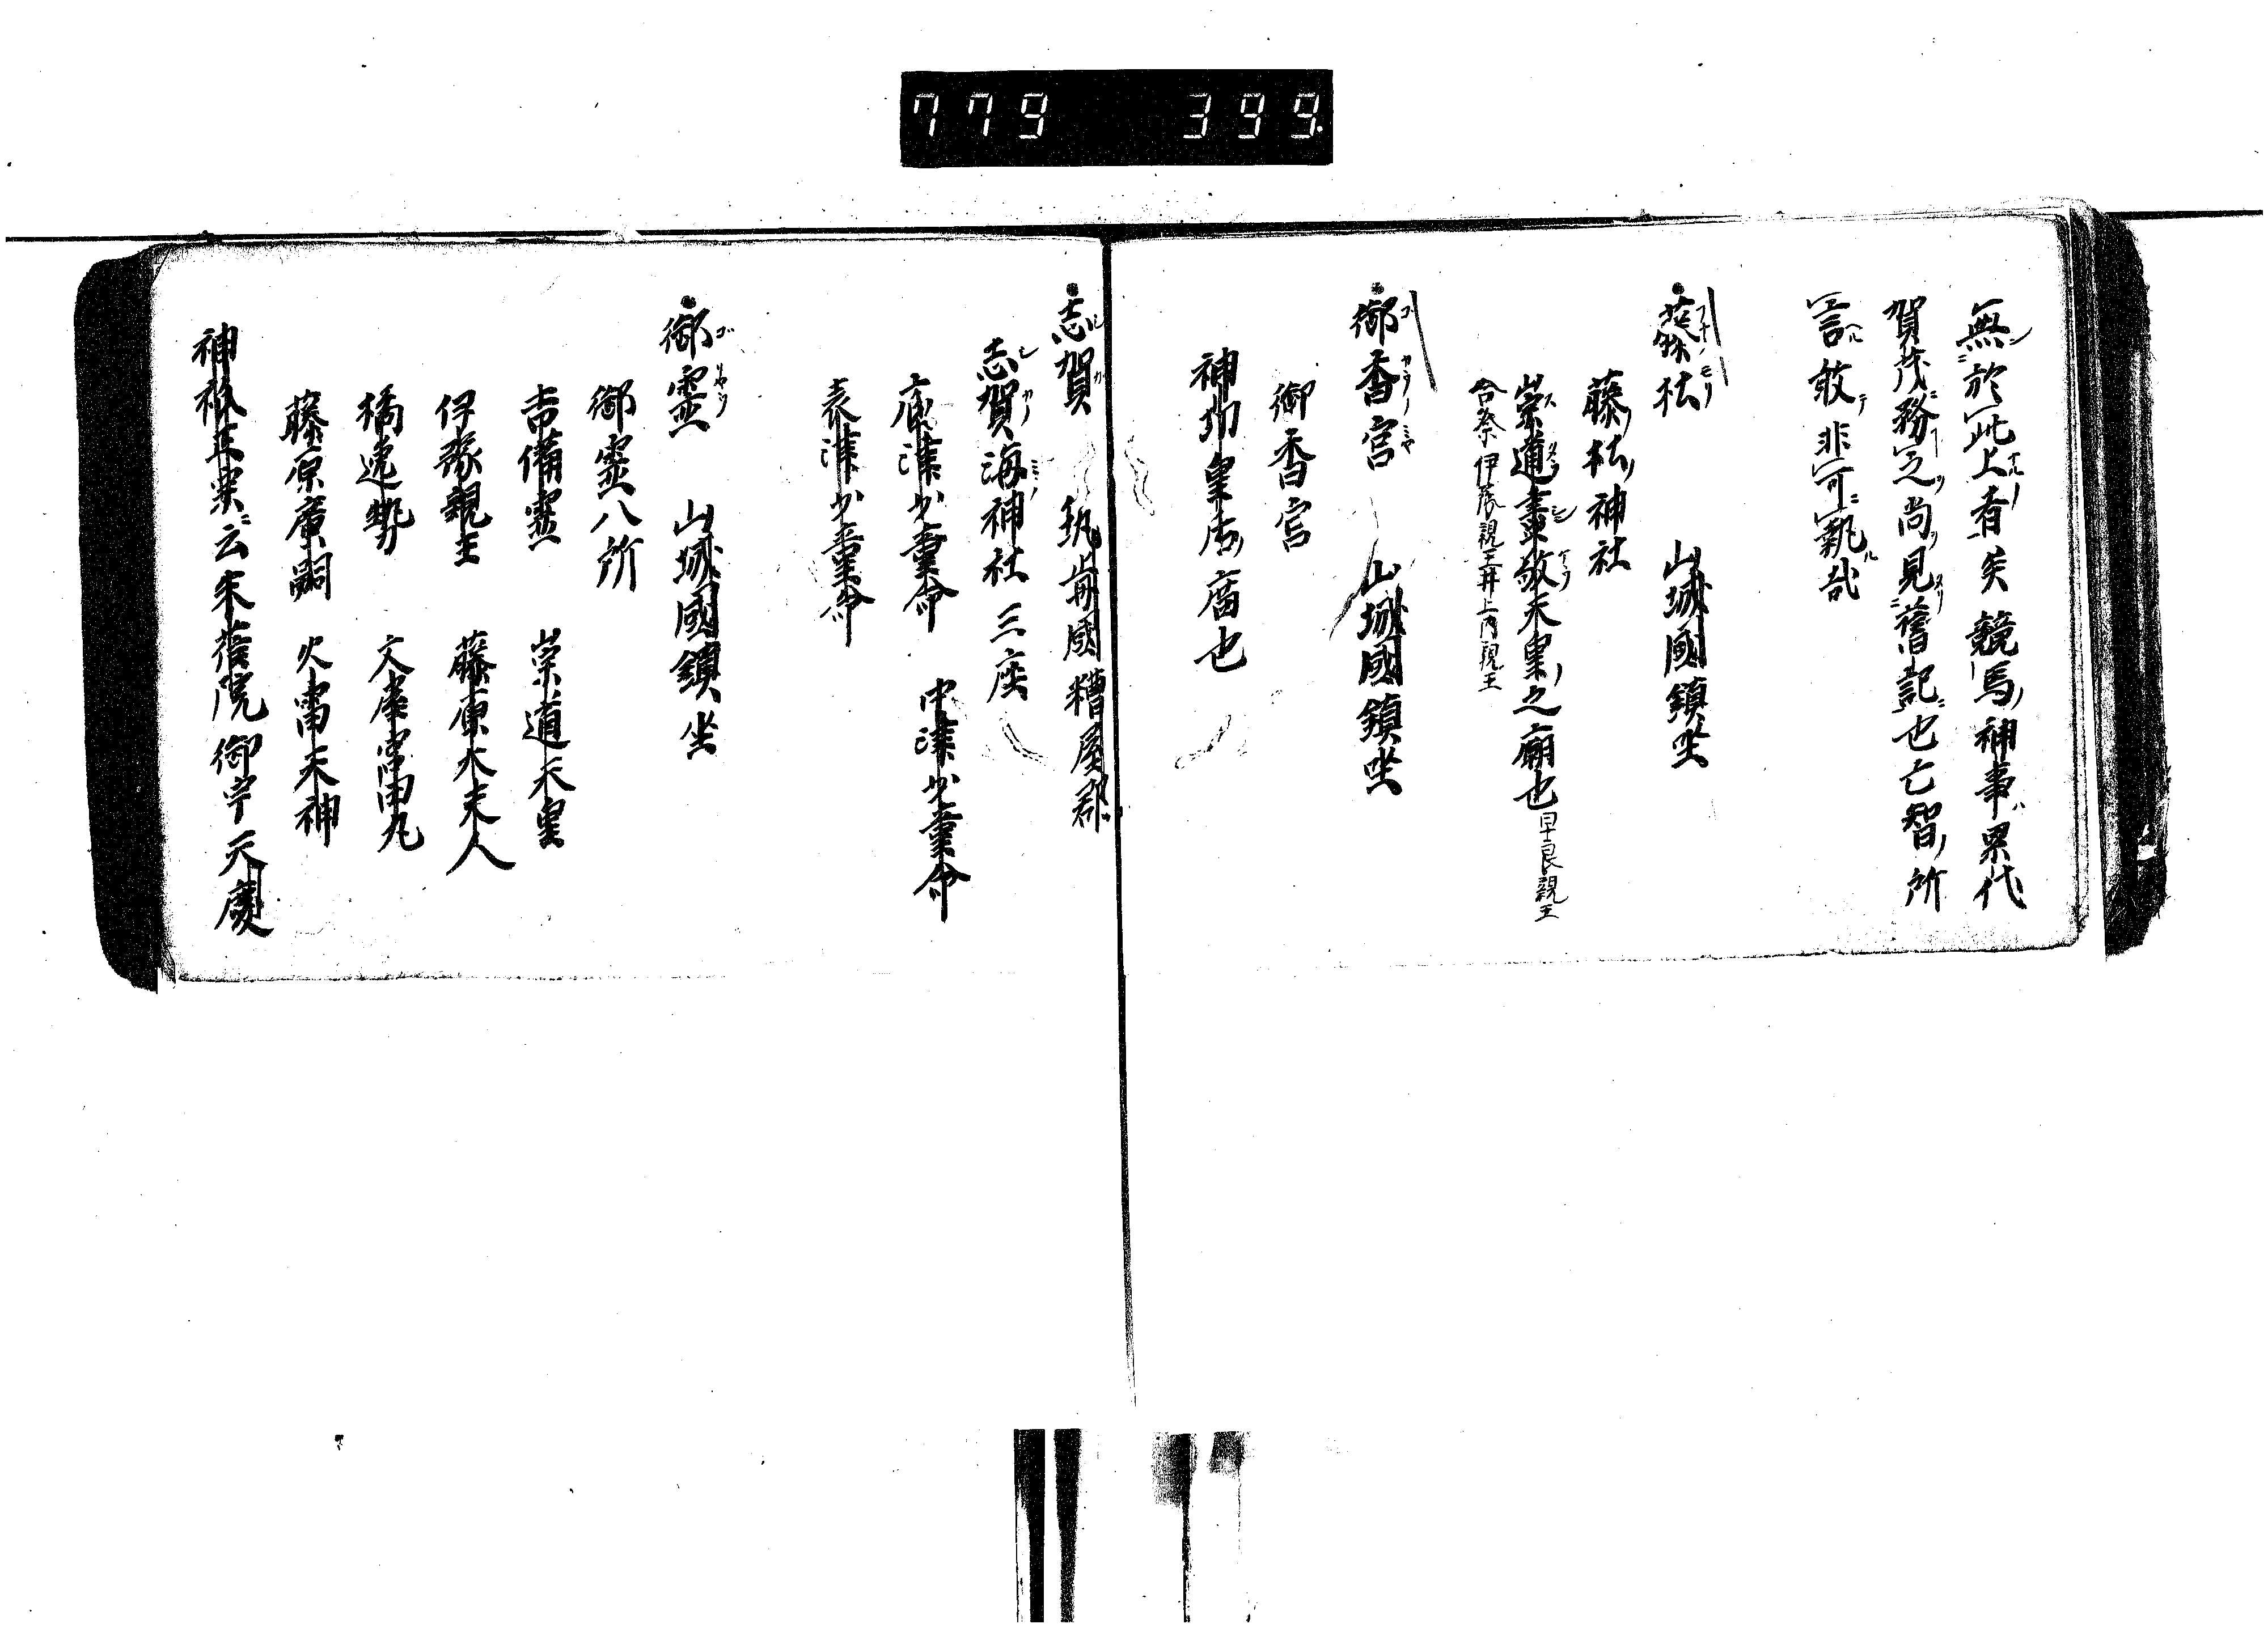 779 399.
無於此上者矣競馬神事累代
賀茂務之尚見舊記也亡智所
言敢非可執哉
藤杜 山城國鎮坐
藤杜神社
崇道盡敬天皇之廟也 早良親王
合祭伊豫親王井上内親王
御香宮 山城國鎮坐
御香宮
神功皇后廟也
志賀 筑前國糟屋郡
志賀海神社三座
底津少童命 中津少童命
表津少童命
御靈 山城國鎮坐
御靈八所
吉備靈 崇道天皇
伊豫親王 藤原大夫人
橘逸勢 文屋宮田丸
藤原廣嗣 火雷天神
神祇正宗云朱雀院御宇天慶